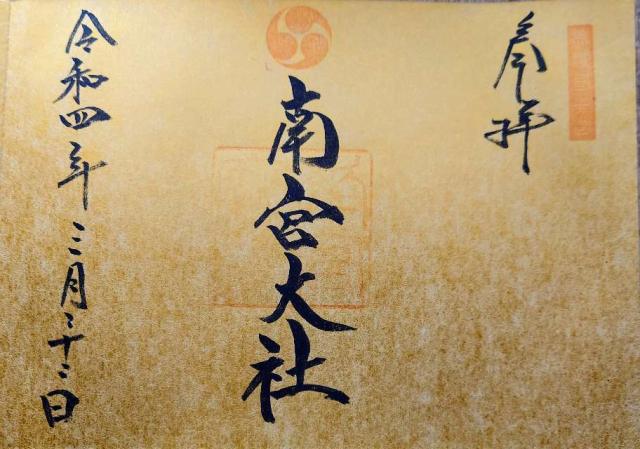 奉拝
南宮大社
令和四年三月二十二日